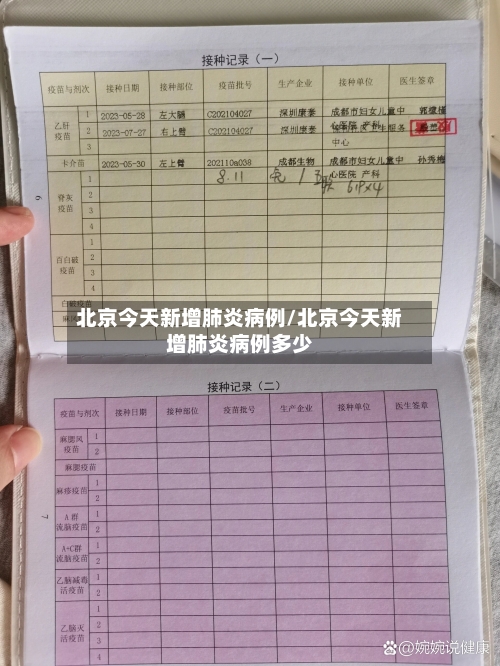 接种记录（一）
疫苗与剂次 接种日期 接种部位 疫苗批号 生产企业 接种单位 医生签章
乙肝疫苗 1 2023-05-28 左大腿 C202104027 深圳康泰 成都市妇女儿童中心医院 产科
2 2023-07-27 右上臂 C202104027 深圳康泰
中心
卡介苗 2023-05-30 左上臂 202110a038 成都生物 成都市妇女儿童中心医院 产科 孙秀梅
脊灰疫苗 1 8.11
2
3
4
百白破疫苗 1
2
3
4
白破疫苗
北京今天新增肺炎病例/北京今天新
增肺炎病例多少
接种记录（二）
疫苗与剂次 接种日期 接种部位 疫苗批号 生产企业 接种单位 医生签章
麻腮风疫苗 1
2
麻腮疫苗
麻疹疫苗 1
2
A群流脑疫苗 1
2
A+C群流脑疫苗 1
2
乙脑减毒活疫苗 1
2
乙脑灭活疫苗 1
2
3
4
6
7
@婉婉说健康